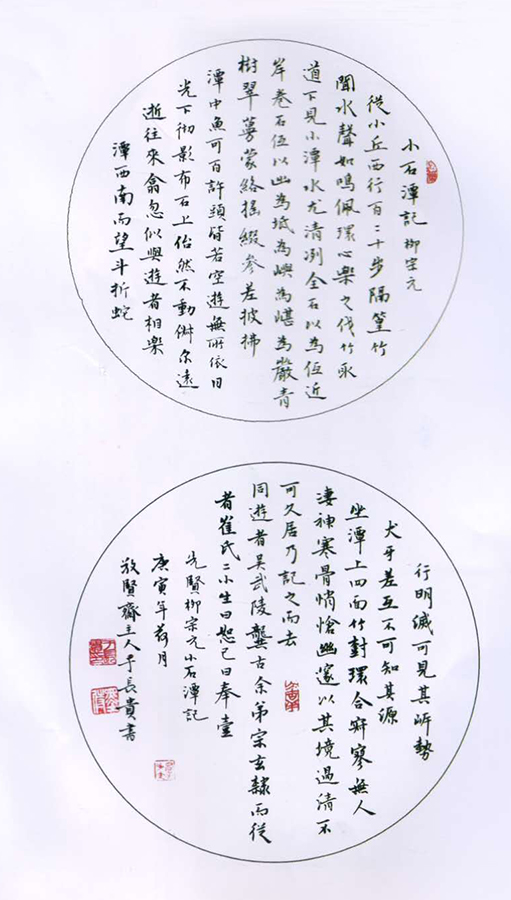 小石潭記 柳宗元
從小丘西行百二十步隔篁竹
聞水聲如鳴佩環心樂之伐竹取
道下見小潭水尤清冽全石以為底近
岸卷石底以出為坻為嶼為嵁為巖青
樹翠蔓蒙絡搖綴參差披拂
潭中魚可百許頭皆若空遊無所依日
光下徹影布石上佁然不動俶尔遠
逝往來翕忽似與遊者相樂
潭西南而望斗折蛇
行明滅可見其岸勢
犬牙差互不可知其源
坐潭上四面竹樹環合寂寥無人
淒神寒骨悄愴幽邃以其境過清不
可久居乃記之而去
同遊者吳武陵龔古余弟宗玄隸而從
者崔氏二小生曰恕己曰奉壹
先賢柳宗元小石潭記
庚寅年荷月
敬賢齋主人于長貴書